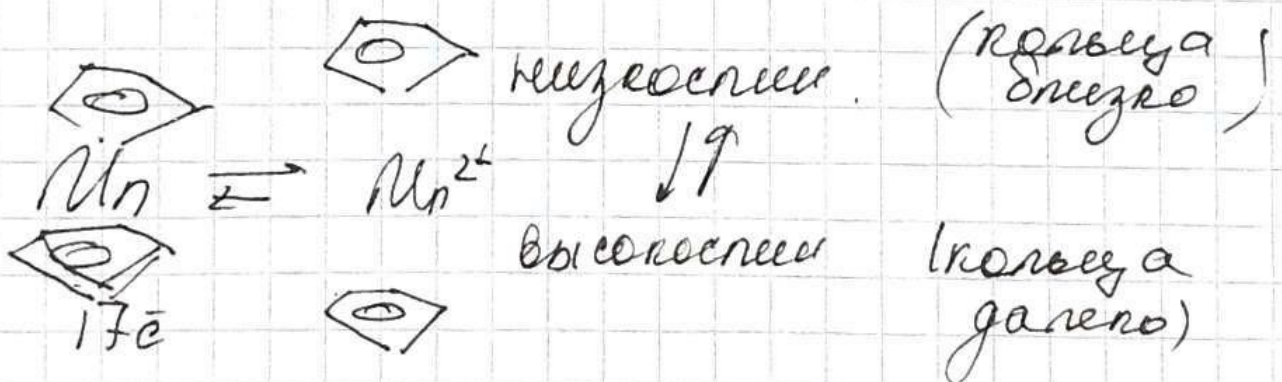 низкоспин. (кольца близко)
Mn ⇌ Mn²⁺ ↓↑
высокоспин (кольца далеко)
17ē